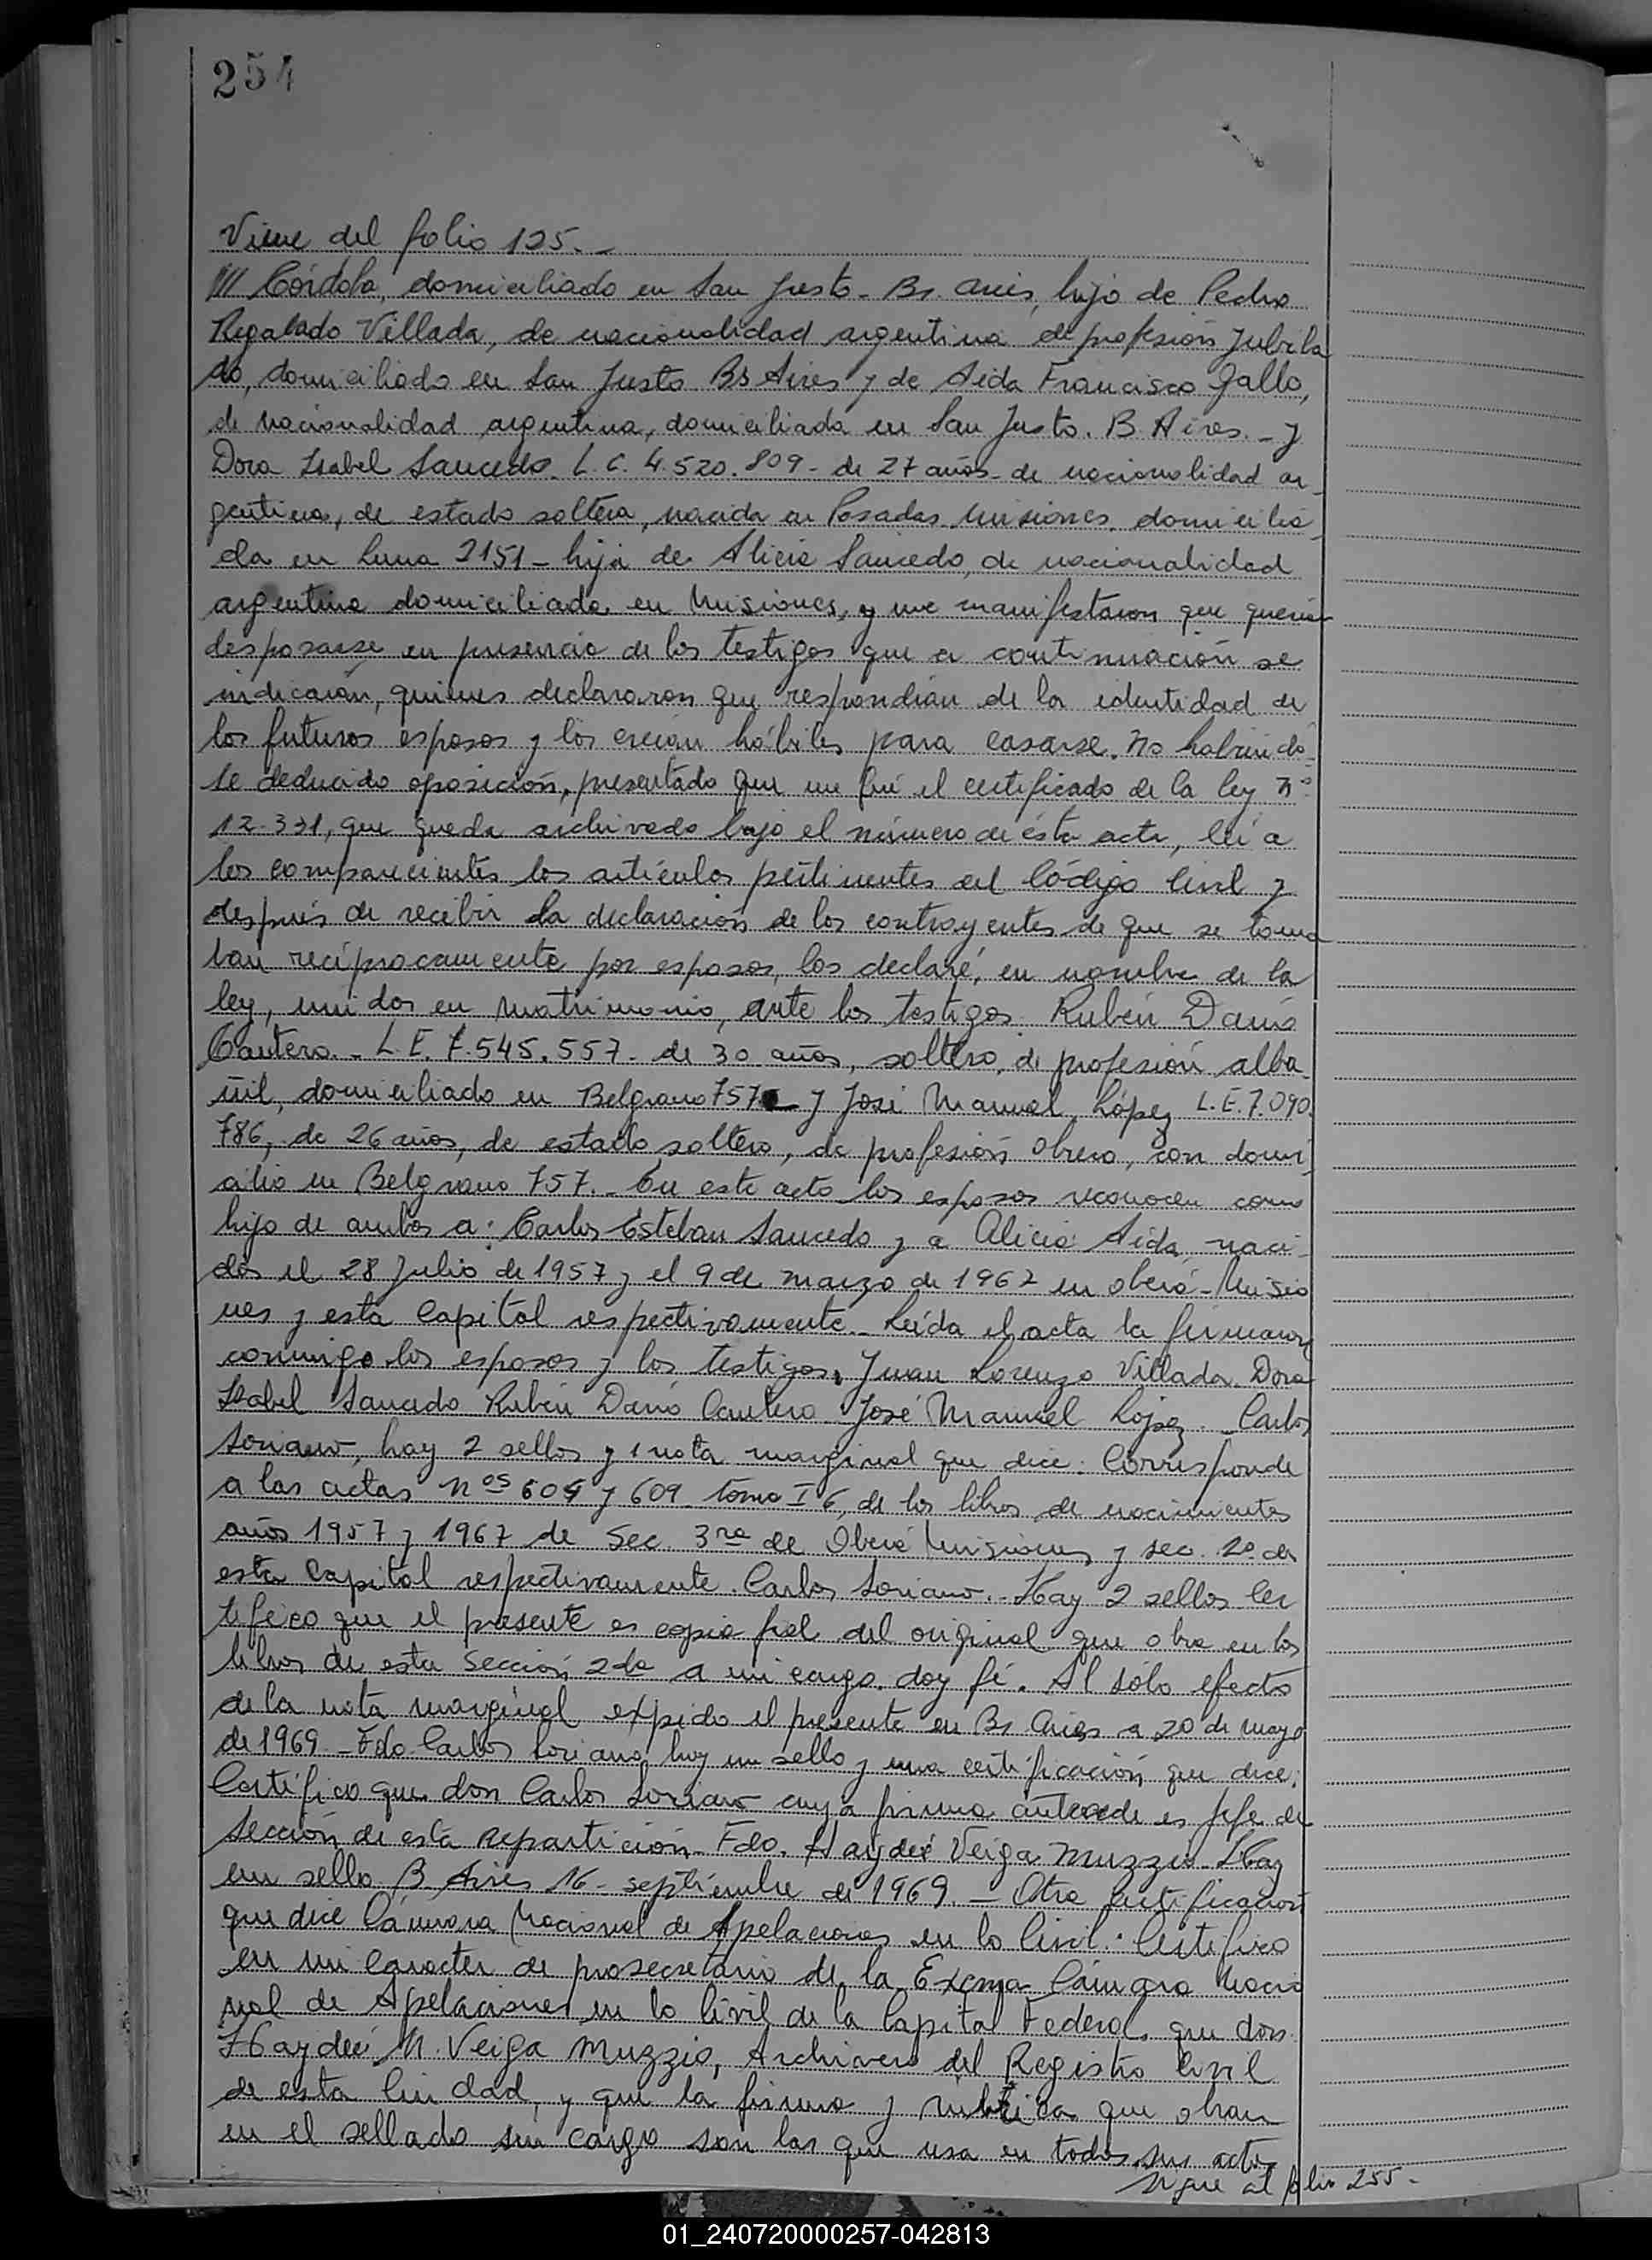 254
Viene del folio 125.-
/// Córdoba, domiciliado en San Justo - Bs. Aires, hijo de Pedro
Regalado Villada, de nacionalidad argentina de profesión Jubila
do, domiciliado en San Justo Bs Aires y de Aida Francisca Gallo,
de nacionalidad argentina, domiciliada en San Justo. B. Aires. - y
Dora Isabel Saucedo. L. C. 4.520.809 - de 27 años - de nacionalidad ar-
gentina, de estado soltera, nacida en Posadas Misiones, domicilia-
da en Luna 2151 - hija de Alicia Saucedo, de nacionalidad
argentina domiciliada en Misiones, y me manifestaron que querían
desposarse en presencia de los testigos que a continuación se
indicarán, quienes declararon que respondían de la identidad de
los futuros esposos y los creían hábiles para casarse. No habiendo-
se deducido oposición, presentado que me fué el certificado de la ley nº
12.331, que queda archivado bajo el número de ésta acta, leí a
los comparecientes los artículos pertinentes del Código Civil y
después de recibir la declaración de los contrayentes de que se toma
ban recíprocamente por esposos, los declaré, en nombre de la
ley, unidos en matrimonio, ante los testigos: Rubén Darío
Cantero. - L. E. 7.545.557 - de 30 años, soltero, de profesión alba-
ñil, domiciliado en Belgrano 757 y José Manuel López L. E. 7.090.
786, de 26 años, de estado soltero, de profesión obrero, con domi-
cilio en Belgrano 757. - En este acto los esposos reconocen como
hijo de ambos a: Carlos Esteban Saucedo y a Alicia Aida, naci-
dos el 28 Julio de 1957 y el 9 de marzo de 1967 en Oberá - Misio
nes y esta Capital respectivamente. - Leída el acta la firmaron
conmigo los esposos y los testigos. Juan Lorenzo Villada. Dora
Isabel Saucedo Rubén Darío Cantero - José Manuel López. - Carlos
Soriano, hay 2 sellos y 1 nota marginal que dice: Corresponde
a las actas nos 604 y 609 - tomo I 6, de los libros de nacimientos
años 1957 y 1967 de Sec. 3ra de Oberá Misiones y sec. 2º de
esta Capital respectivamente. Carlos Soriano. - Hay 2 sellos Cer
tifico que el presente es copia fiel del original que obra en los
libros de esta Sección 2da a mi cargo. doy fé. Al sólo efecto
de la nota marginal expido el presente en Bs. Aires a 20 de mayo
de 1969 - Fdo. Carlos Soriano hay un sello y una certificación que dice:
Certifico que don Carlos Soriano cuya firma antecede es jefe de
Sección de esta Repartición. Fdo. Haydeé Veiga Muzzio. Hay
un sello B. Aires 16 - septiembre de 1969. - Otra certificación
que dice Cámara Nacional de Apelaciones en lo Civil. Certifico
en mi caracter de prosecretario de la Excma Cámara Nacio
nal de Apelaciones en lo Civil de la Capital Federal, que don
Haydeé M. Veiga Muzzio, Archivero del Registro Civil
de esta Ciudad, y que la firma y rúbrica que obran
en el sellado sin cargo son las que usa en todos sus actos
sigue al folio 255 -
01_240720000257-042813